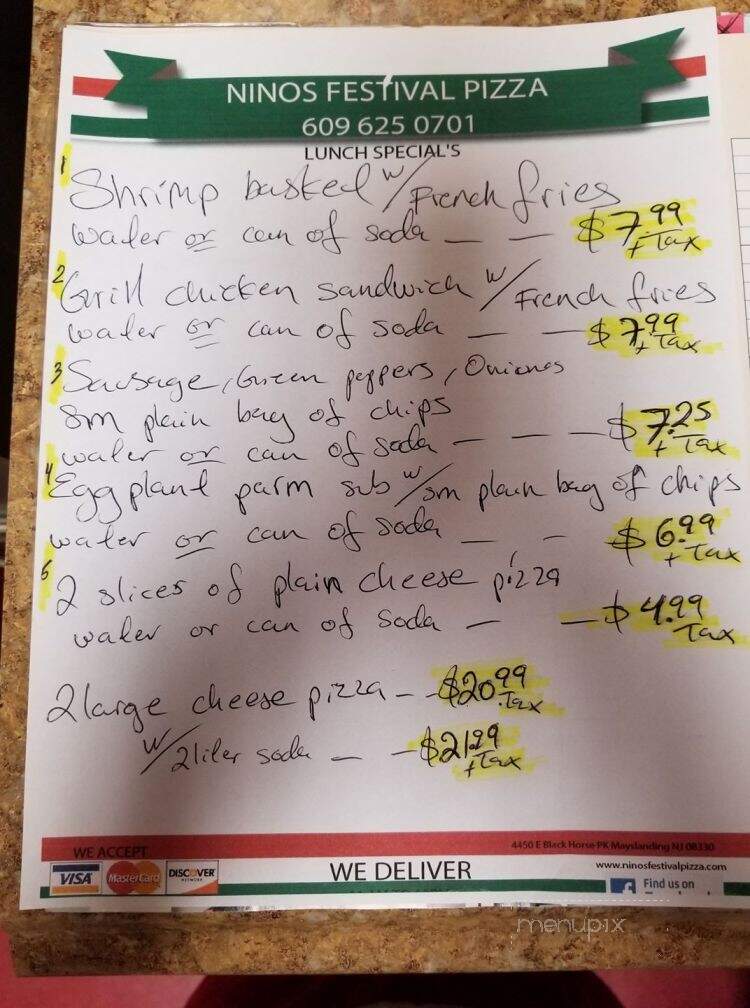 NINOS FESTIVAL PIZZA
609 625 0701
LUNCH SPECIAL'S
1 Shrimp basked w/French fries
water or can of soda — — $7.99
+ Tax
2 Grill chicken sandwich w/French fries
water or can of soda — — $7.99
+ Tax
3 Sausage, Green peppers, Onions
sm plain bag of chips
water or can of soda — — — $7.25
+ Tax
4 Eggplant parm sub w/sm plain bag of chips
water or can of soda — - $6.99
+ Tax
5 2 slices of plain cheese pizza
water or can of soda — — $4.99
Tax
2 large cheese pizza - - $20.99
.Tax
w/2liter soda — - $21.99
+ Tax
WE ACCEPT
4450 E Black Horse PK Mayslanding NJ 08330
VISA MasterCard DISCOVER
NETWORK
WE DELIVER
www.ninosfestivalpizza.com
f Find us on
menupix